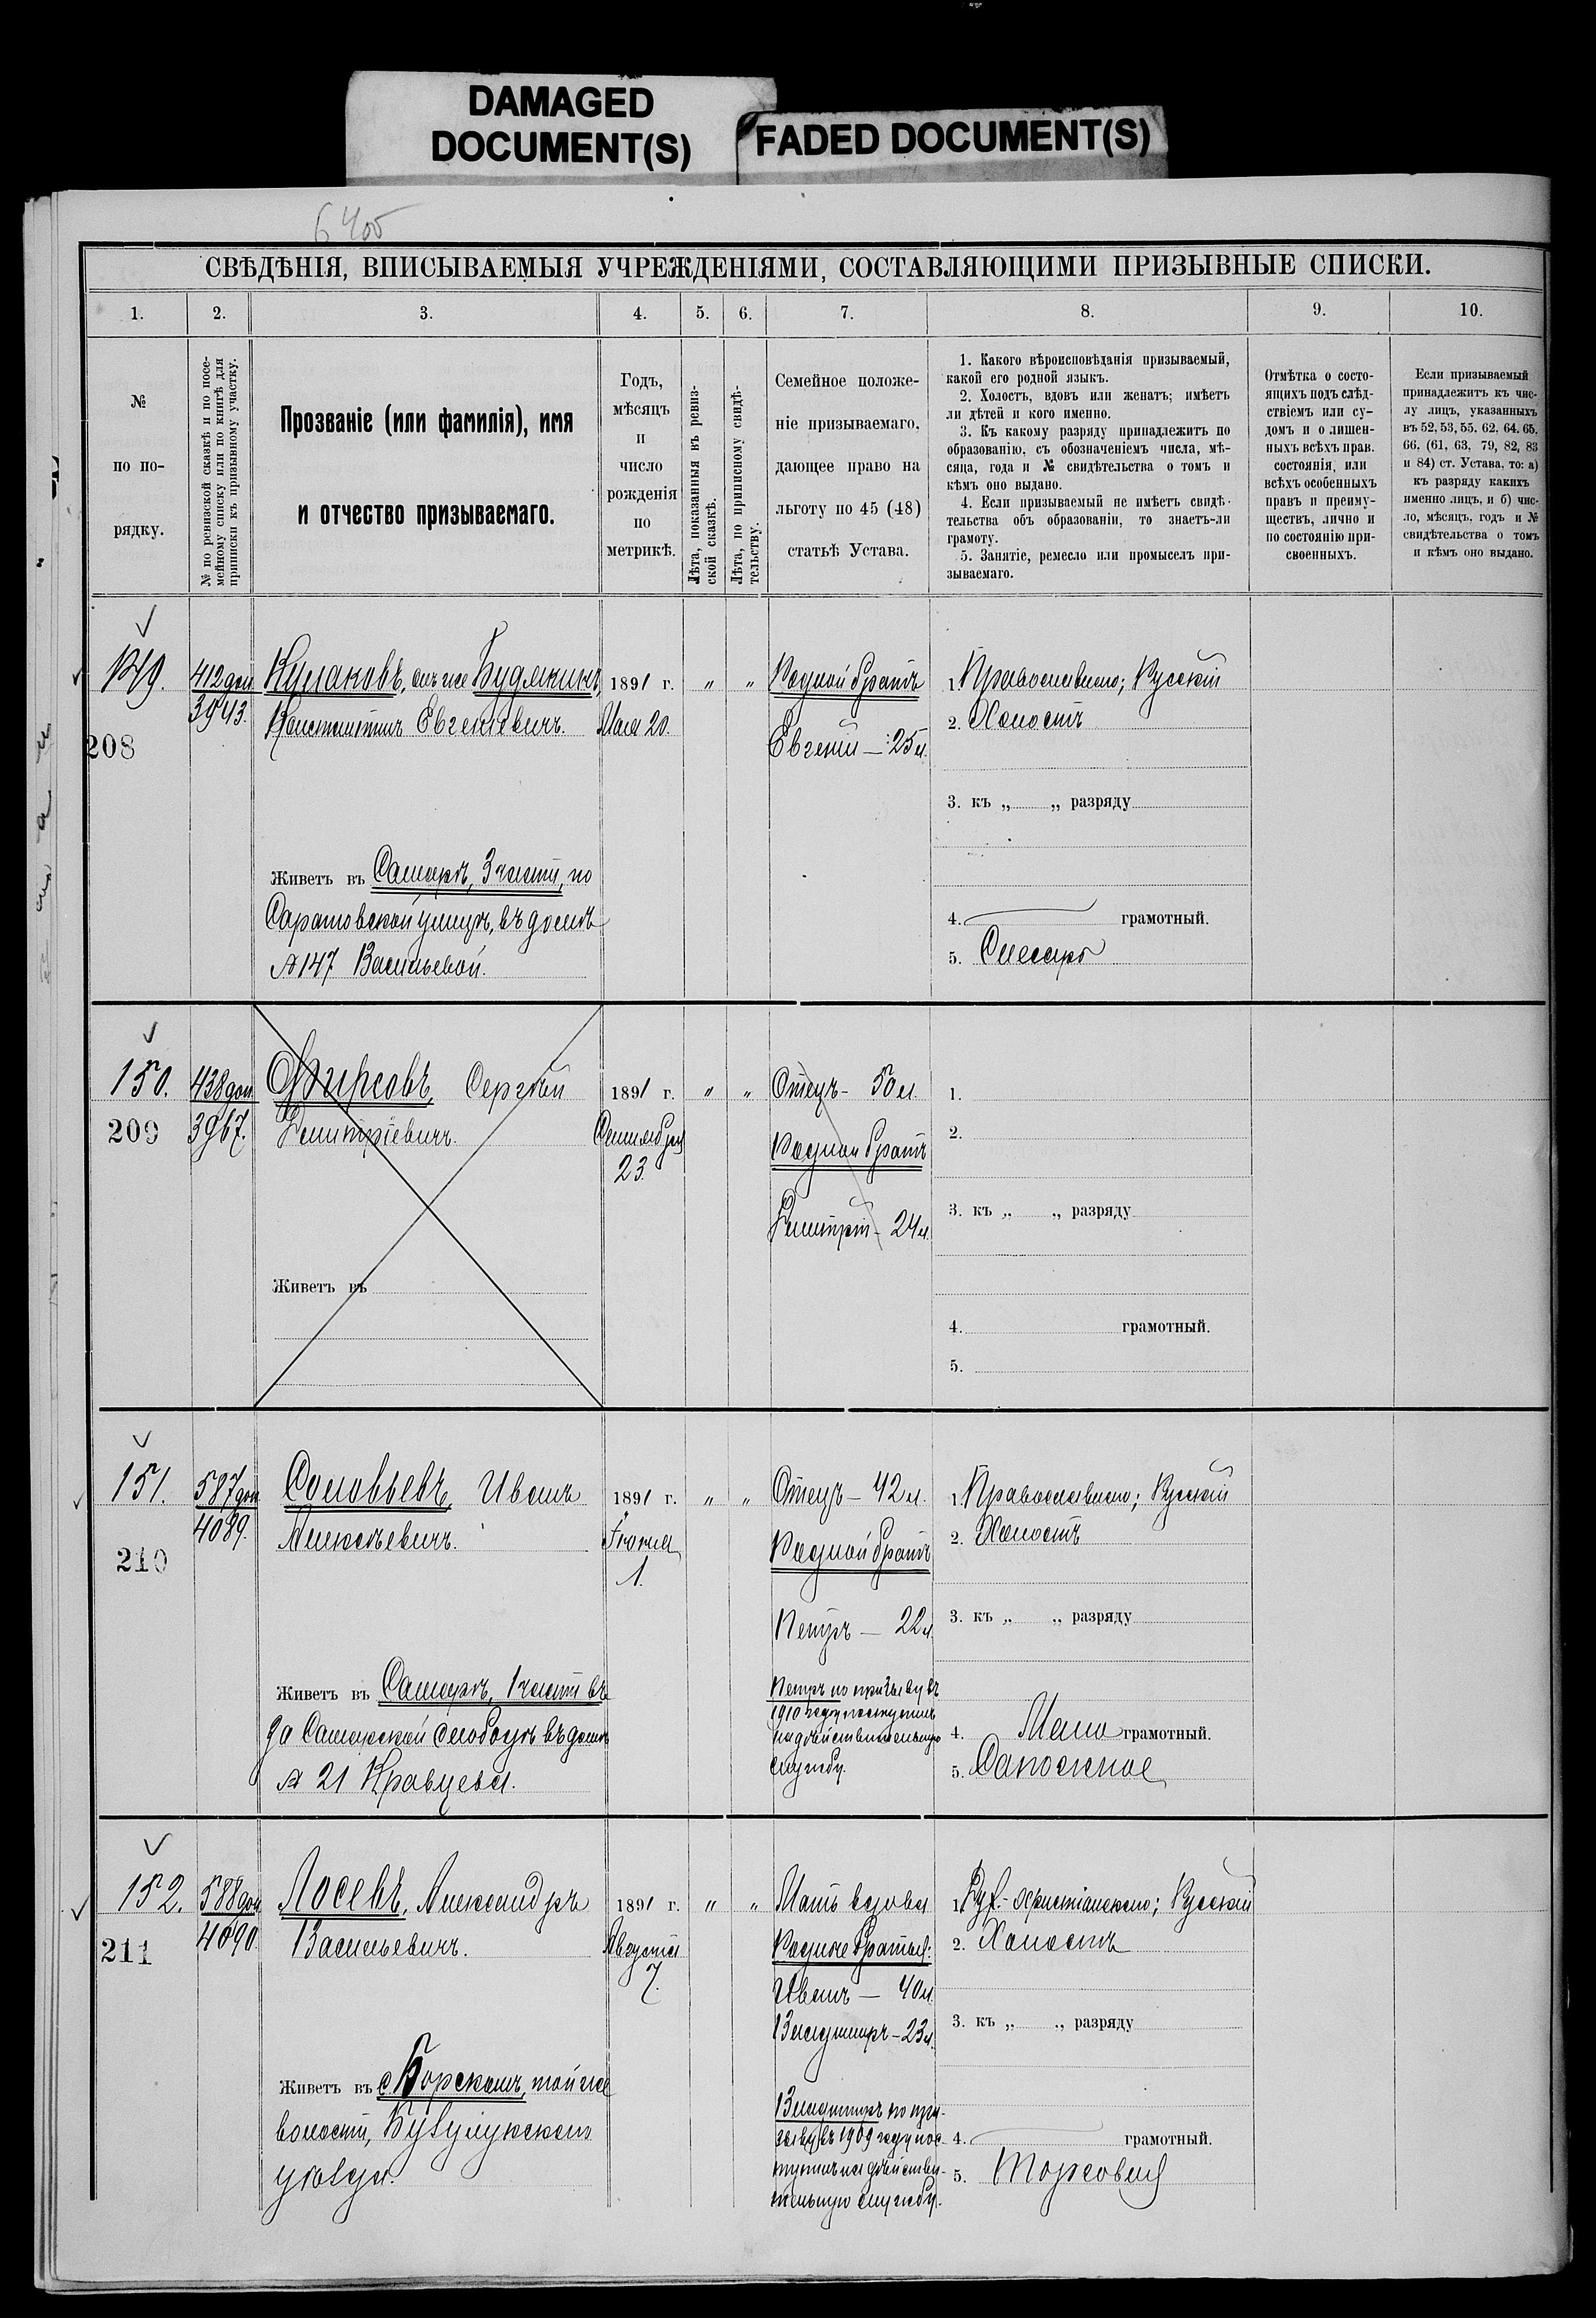 DAMAGED
DOCUMENT(S)
FADED DOCUMENT(S)
СВѢДѢНІЯ, ВПИСЫВАЕМЫЯ УЧРЕЖДЕНІЯМИ, СОСТАВЛЯЮЩИМИ ПРИЗЫВНЫЕ СПИСКИ.
1. 2. 3. 4. 5. 6. 7. 8. 9. 10.
№
по по-
рядку.
№ по ревизской сказкѣ и по посе-
мейному списку или по книгѣ для
приписки къ призывному участку.
Прозваніе (или фамилія), имя
и отчество призываемаго.
Годъ,
мѣсяцъ
и
число
рожденія
по
метрикѣ.
Лѣта, показанныя въ ревиз-
ской сказкѣ.
Лѣта, по приписному свидѣ-
тельству.
Семейное положе-
ніе призываемаго,
дающее право на
льготу по 45 (48)
статьѣ Устава.
1. Какого вѣроисповѣданія призываемый,
какой его родной языкъ.
2. Холостъ, вдовъ или женатъ; имѣетъ
ли дѣтей и кого именно.
3. Къ какому разряду принадлежитъ по
образованію, съ обозначеніемъ числа, мѣ-
сяца, года и № свидѣтельства о томъ и
кѣмъ оно выдано.
4. Если призываемый не имѣетъ свидѣ-
тельства объ образованіи, то знаетъ-ли
грамоту.
5. Занятіе, ремесло или промыселъ при-
зываемаго.
Отмѣтка о состо-
ящихъ подъ слѣд-
ствіемъ или су-
домъ и о лишен-
ныхъ всѣхъ прав.
состоянія, или
всѣхъ особенныхъ
правъ и преиму-
ществъ, лично и
по состоянію при-
своенныхъ.
Если призываемый
принадлежитъ къ чис-
лу лицъ, указанныхъ
въ 52, 53, 55. 62, 64. 65.
66. (61, 63, 79, 82, 83
и 84) ст. Устава, то: а)
къ разряду какихъ
именно лицъ, и б) чис-
ло, мѣсяцъ, годъ и №
свидѣтельства о томъ
и кѣмъ оно выдано.
149.
208
412 доп
3943.
Кулаковъ, онъ же Будякинъ,
Константинъ Евгеніевичъ.
Живетъ въ Самарѣ, 3 части, по
Саратовской улицѣ, въ домѣ
№ 147 Васильевой.
1891 г.
Мая 20.
„ „
Родной братъ
Евгеній — 25 л.
1. Православнаго; Русскій
2. Холостъ
3. къ „ „ разряду
4. грамотный.
5. Слесарь
150.
209
438 доп
3967.
Фирсовъ, Сергѣй
Дмитріевичъ.
Живетъ въ
1891 г.
Сентября
23.
„ „
Отецъ - 50 л.
Родной братъ
Дмитрій - 24 л.
1.
2.
3. къ „ „ разряду
4. грамотный.
5.
151.
210
587 доп
4089.
Соловьевъ, Иванъ
Алексѣевичъ.
Живетъ въ Самарѣ, 1 части въ
Самарской слободѣ въ домѣ
№ 21 Кравцева.
1891 г.
1.
„ „
Отецъ — 42 л.
Родной братъ
Петръ — 22 л.
Петръ по призыву въ
1910 году поступилъ
на дѣйствительную
службу.
1. Православнаго; Русскій
2. Холостъ
3. къ „ „ разряду
4. Мало грамотный.
5. Сапожное
152.
211
588 доп
4090.
Лосевъ, Александръ
Васильевичъ.
Живетъ въ с. Борскомъ, той же
волости, Бузулукскаго
уѣзда.
1891 г.
Августа
7.
„ „
Мать вдова
Родные братья:
Иванъ — 40 л.
Владиміръ - 23 л.
Владиміръ по при-
зыву въ 1909 году пос-
тупилъ на дѣйстви-
тельную службу.
1. Дух.-христіанскаго; Русскій
2. Холостъ
3. къ „ „ разряду
4. грамотный.
5. Торговля